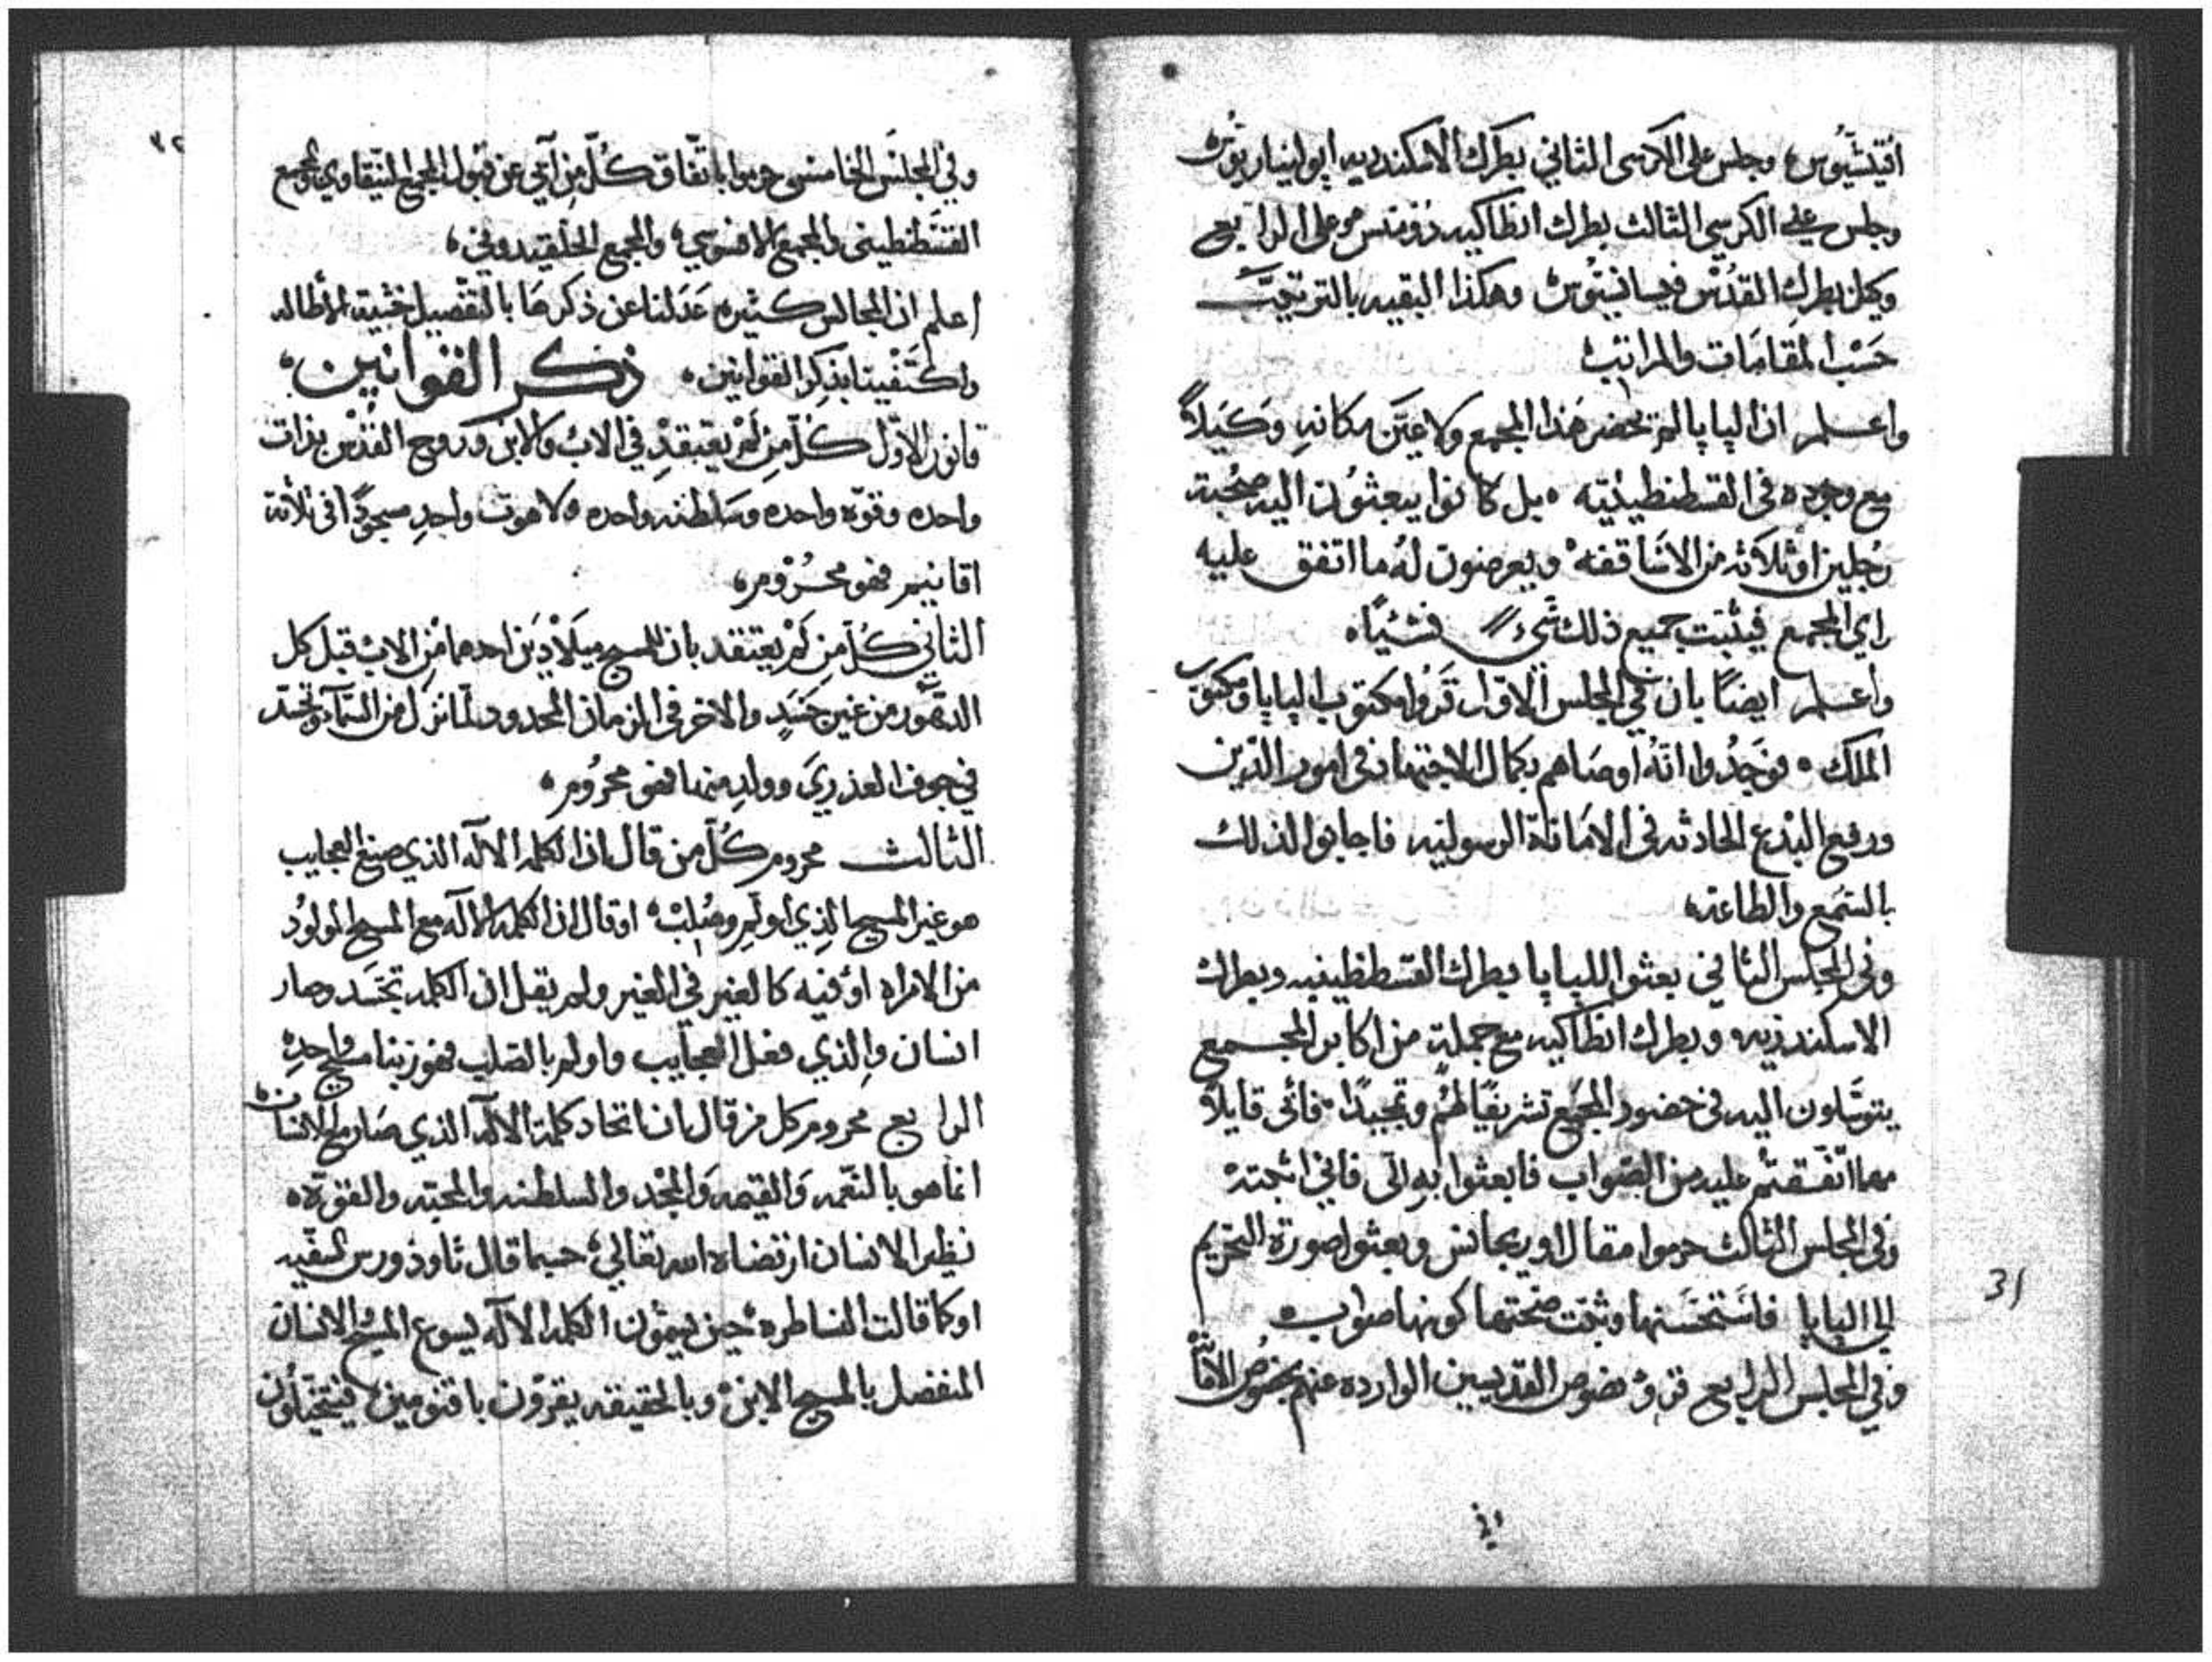 افتيشيوس، وجلس على الاكرسى الثاني بطرك الاسكندريه اپولينياريوس
وجلس على الكرسي الثالث بطرك انطاكيه دومنس، وعلى الرابع
وكيل بطرك القدس وهكذا البقيه بالترتيب
حَسْب المقامَات والمراتب،
واعلم ان الپاپا لم يحضر هَذا المجمع ولا عيَّن مكانهِ وَكيلاً
مع وجوده في القسطنطينيّه، بل كانوا يبعثُون اليه صحبة
رُجلين او ثلاثه من الاسَاقفهْ ويعرضون لهُ ما اتفق عليه
راي المجمع فيثبت جميع ذلك شيء فشيئاً،
واعلم ايضاً بان في المجلس الاوّل قَرَوا مكتوب الپاپا ومكتوب
الملك، فوَجَدُوا انّهُ اوصَاهم بكمال الاجتهاد في امور الدّين
ورفع البْدع الحادثه في الامَانة الرسوليّه فاجابوا لذلك
بالسَمع والطاعة،
وفي المجلس الثاني بعثوا للپاپا بطرك القسطنطينيه وبطرك
الاسكندريه وبطرك انطاكيه مع جملةٍ من اكابر المجمع
يتوسَّلون اليه في حضور المجمَع تشريفًا لهُم وتمجيدًا، فأتى قايلاً
مهما اتّفَقتُم عليه من الصَواب فابعثوا بهِ الى فاني اثبتهْ
وفي المجلس الثالث حرموا مقال اوريجانس وبعثوا صورة التحريم
الى الپاپا فاسَتحسَنها وثبّت صحّتها كونها صواب،
وفي المجلس الرابع قروْا نصوص القدّيسين الوارده عنهم بخصُوص الامَانَة
وفي
31
٣٢
وفي المجلسَ الخامس حرموا باتّفاق كُلّ مِن آبَي عن قبُول المجمع النيقاوي والمجمع
القسطنطيني والمجمع الافسوسي، والمجمع الخلقيدوني،
اعلم ان المجالس كثيره عَدَلنا عن ذكرهَا بالتّفصيل خشية الاطاله
واكتَفينا بذِكر القوانين، ذكر القوانين،
قانون الاوّل كُلّ مِن لَم يَعتقدْ في الابْ والابن وروح القدْس بذات
واحده وقوّه واحده وسَلطنه واحده، لاهوت واحدٍ مسجودًا في ثلاثة
اقانيم فهو محرُوم،
الثاني كُلّ مِن لَم يعتقد بان للمسيح ميلادَين احدهما مِن الابْ قبل كل
الدهُور من غير جسَدٍ والاخر في الزمان المحدود لمّا نزل من السَمآء وتجسّد
في جوف العذرَي وولدِ منها فهو محرُوم،
الثالث محروم كُلّ من قال ان الكلمه الالٓه الذي صنع العجايب
هو غير المسيح الذِي اولم وصُلِبْ، او قال ان الكلمه الالٓه مع المسيح المولوُد
من الامراه او فيه كالغير في الغير ولم يقل ان الكلمه تجسَّد وصار
انسان والذي فعل العجايب واولم بالصّليب فهو ربنا مسيح واحدِ،
الرابع محروم كل من قال بان اتحاد كلمة الالٓه الذي صَار مع الانسان
انما هو بالنعمه والقيمه وَالمجْد والسلطنه والمحبّه والقوّة،
نظير الانسان ارتضاه الله تعالي، حسبما قال ثاودورس السَفيه
اوكما قالت النساطره، حين يسمّون الكلمه الالٓه يسوع المسيُح الانسان
المنفصل بالمسيح الابن، وبالحقيقه يقرّون باقنومين،